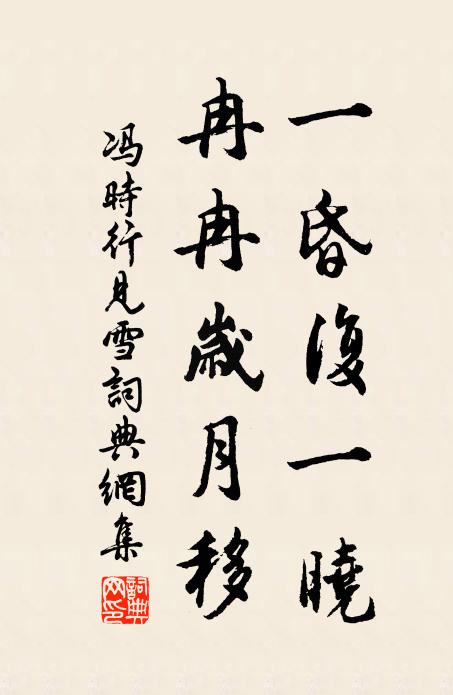 一昏復一曉
冉冉歲月移
冯時行見雪詞典網集
詞典网印